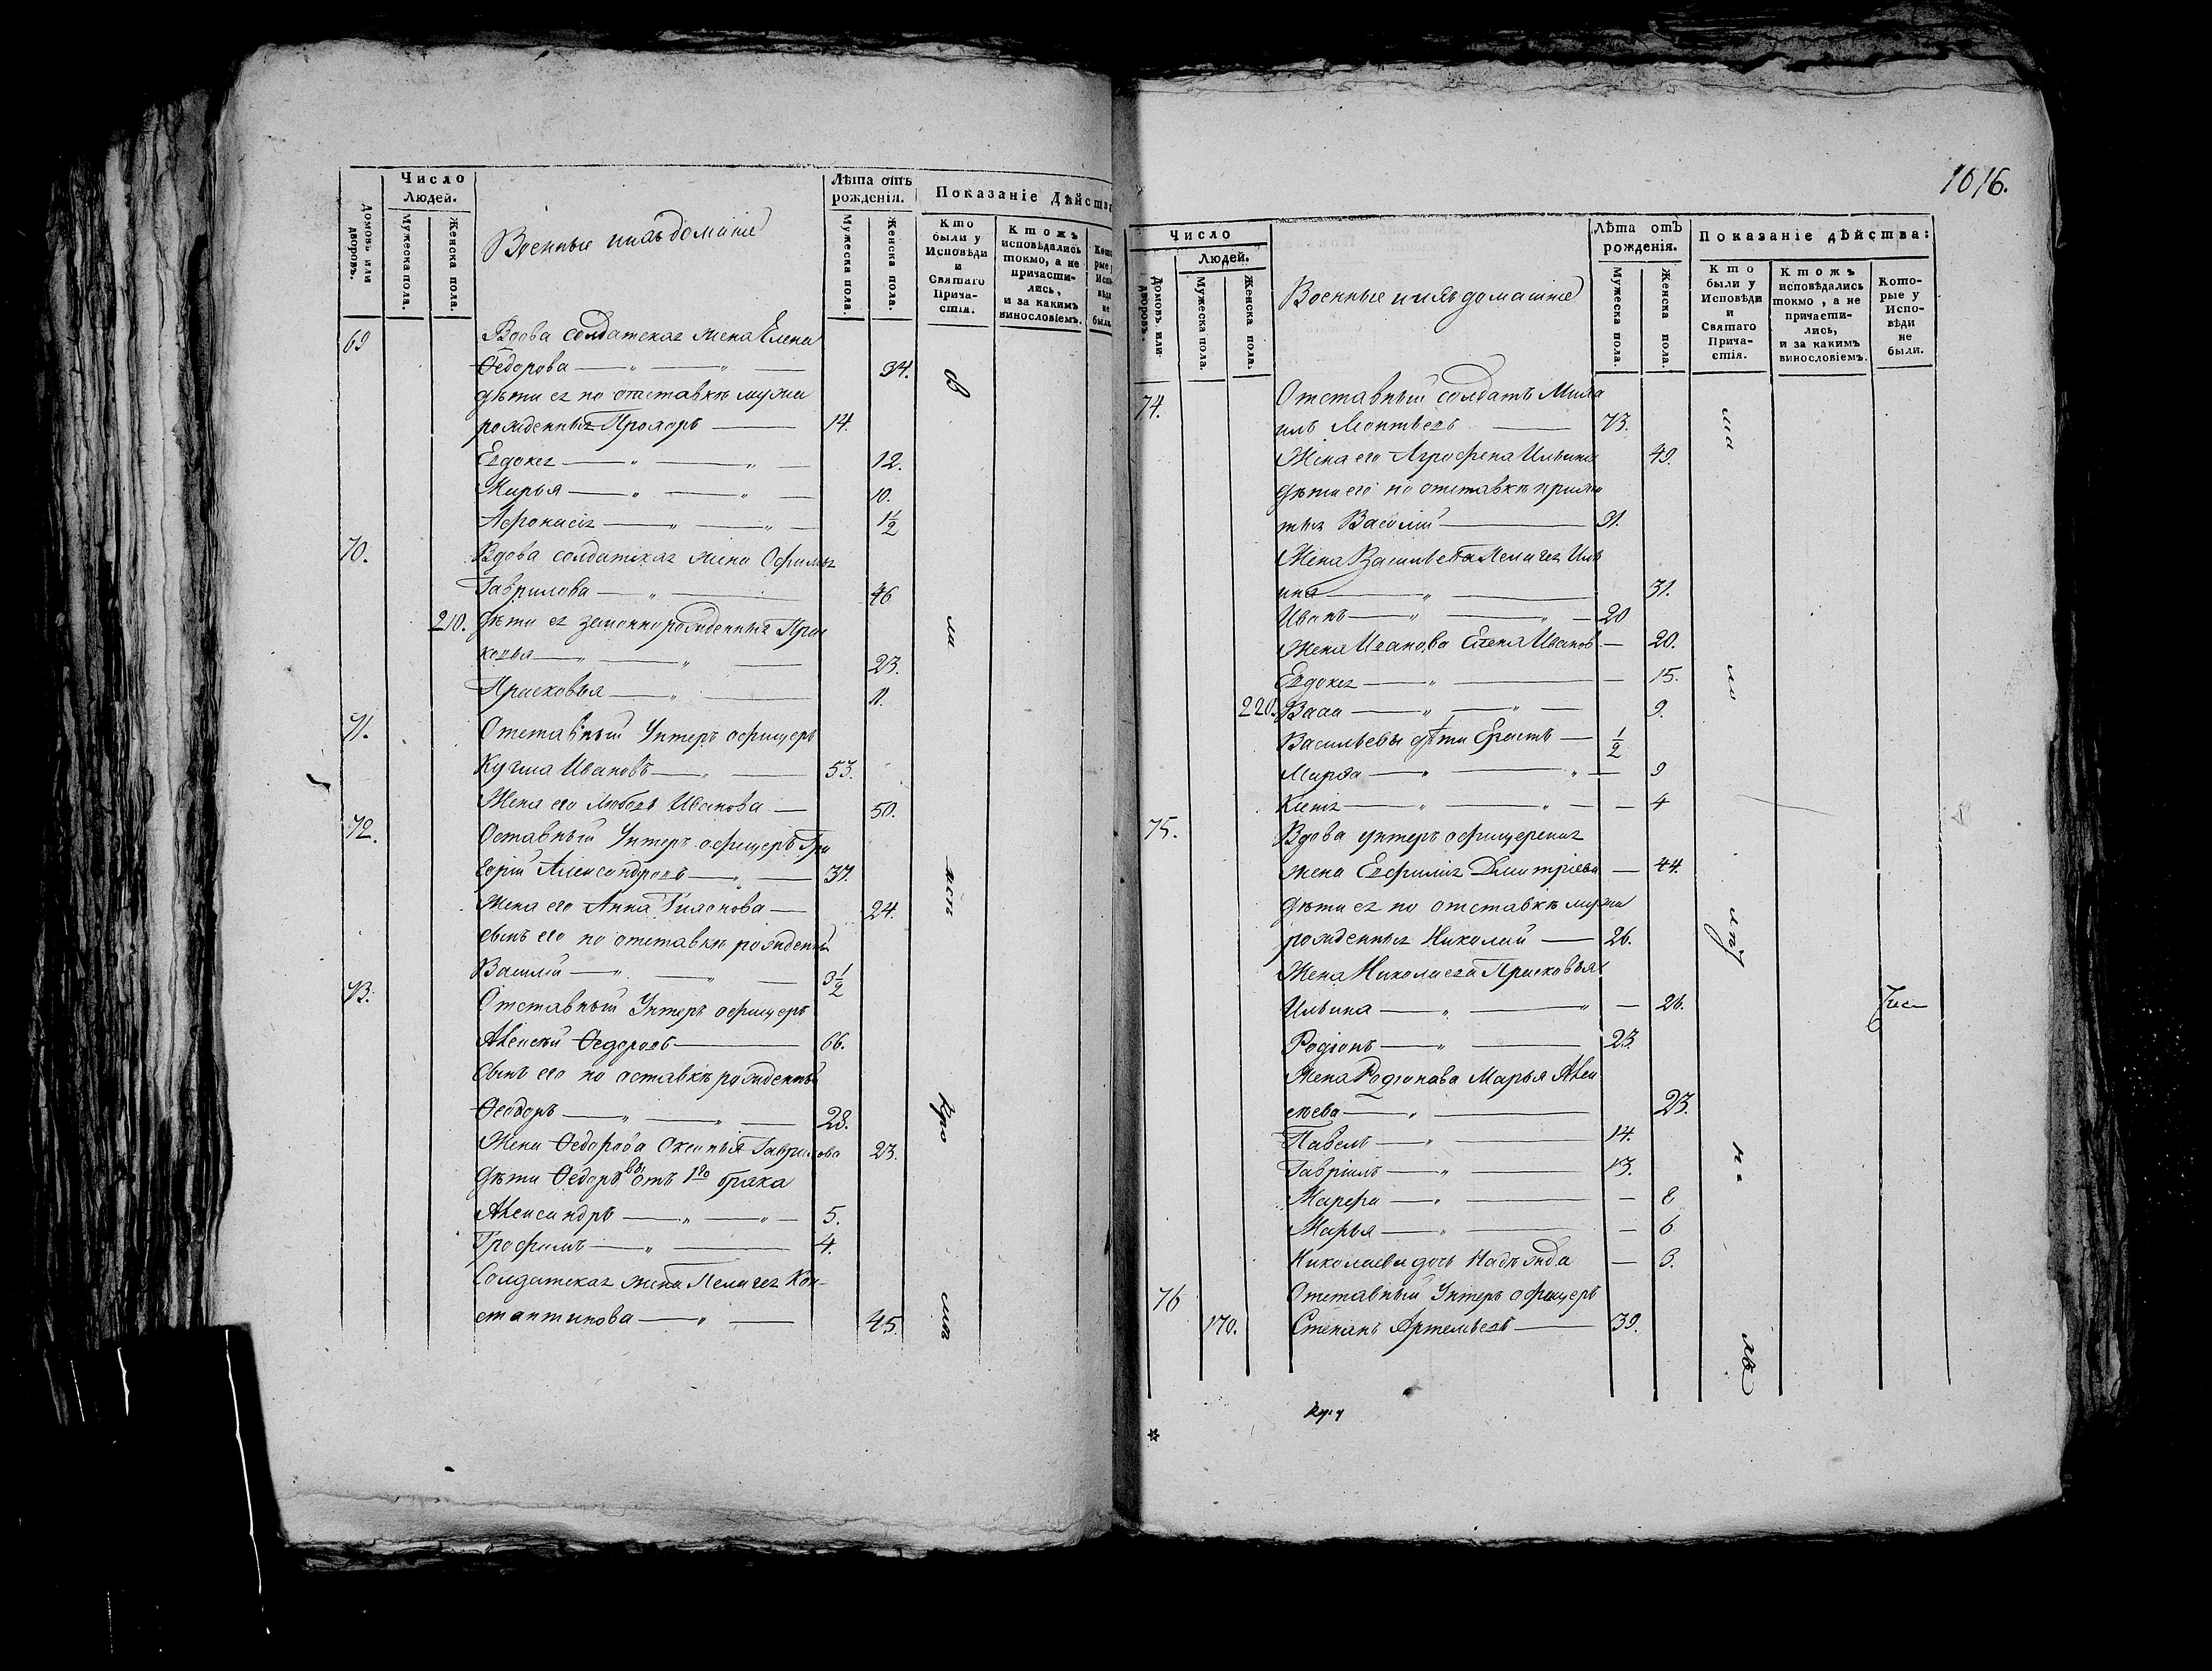 Число
Людей.
Домовъ или дворовъ.
Мужеска пола.
Женска пола.
Военные и ихъ домашніе
Лѣта отъ рожденія.
Мужеска пола.
Женска пола.
Показаніе Дѣйства
Кто были у Исповѣди и Святаго Причастія.
Ктожъ исповѣдались токмо, а не причастились, и за какимъ винословіемъ.
69 Вдова солдатская жена Елена
Ѳедорова 34.
дѣти ея по отставкѣ мужа
рожденныя Прохоръ 14.
Евдокея 12.
Марья 10.
Афонасія 1 1/2
70. Вдова солдатская жена Офимья
Гаврилова 46
210. дѣти ея законно рожденныя Прас
ковья 23.
Прасковья 11.
71. Отставный Унтеръ офицеръ
Кузма Ивановъ 53.
Жена его Любовь Иванова 50.
72. Оставный Унтеръ офицеръ Гри
горій Александровъ 37.
Жена его Анна 24.
сынъ его по отставкѣ рожденный
Василій 3 1/2
73. Отставный Унтеръ офицеръ
Алексѣй Ѳедоровъ 66.
Сынъ его по оставкѣ рожденный
Ѳеодоръ 28.
Жена Ѳедорова Оксинья Гаврилова 23.
Дѣти Ѳедоровы отъ 1го брака
Александръ 5.
Трофимъ 4.
Солдатская жена Пелагея Кон-
стантинова 45.
1016.
Число
Людей.
Домовъ или дворовъ.
Мужеска пола.
Женска пола.
Военные и ихъ домашніе
Лѣта отъ рожденія.
Мужеска пола.
Женска пола.
Показаніе дѣйства:
Кто были у Исповѣди и Святаго Причастія.
Ктожъ исповѣдались токмо, а не причастились, и за какимъ винословіемъ.
Которые у Исповѣди не были.
74. Отставный солдатъ Миха
илъ Леонтьевъ 73.
Жена его Агрофена Ильина 49.
дѣти его по отставкѣ прижи
тыя Василій 31.
Жена Васильева Пелагея Иль
ина 31.
Иванъ 20
Жена Иванова Елена Иванов 20.
Евдокея 15.
220. Васса 9.
Васильевы дѣти Ерастъ 1/2
Марѳа 9
Ксенія 4
75. Вдова унтеръ офицерская
жена Евфимія Дмитріева 44.
дѣти ея по отставкѣ мужа
рожденныя Николай 26.
Жена Николаева Прасковья
Ильина 26.
Родіонъ 23.
Жена Родіонова Марья Алек
сѣева 23.
Павелъ 14.
Гавріилъ 13.
Марфа 8
Марья 6
Николаева дочь Надѣжда 3.
76 Отставный Унтеръ офицеръ
170. Степанъ Артемьевъ 39.